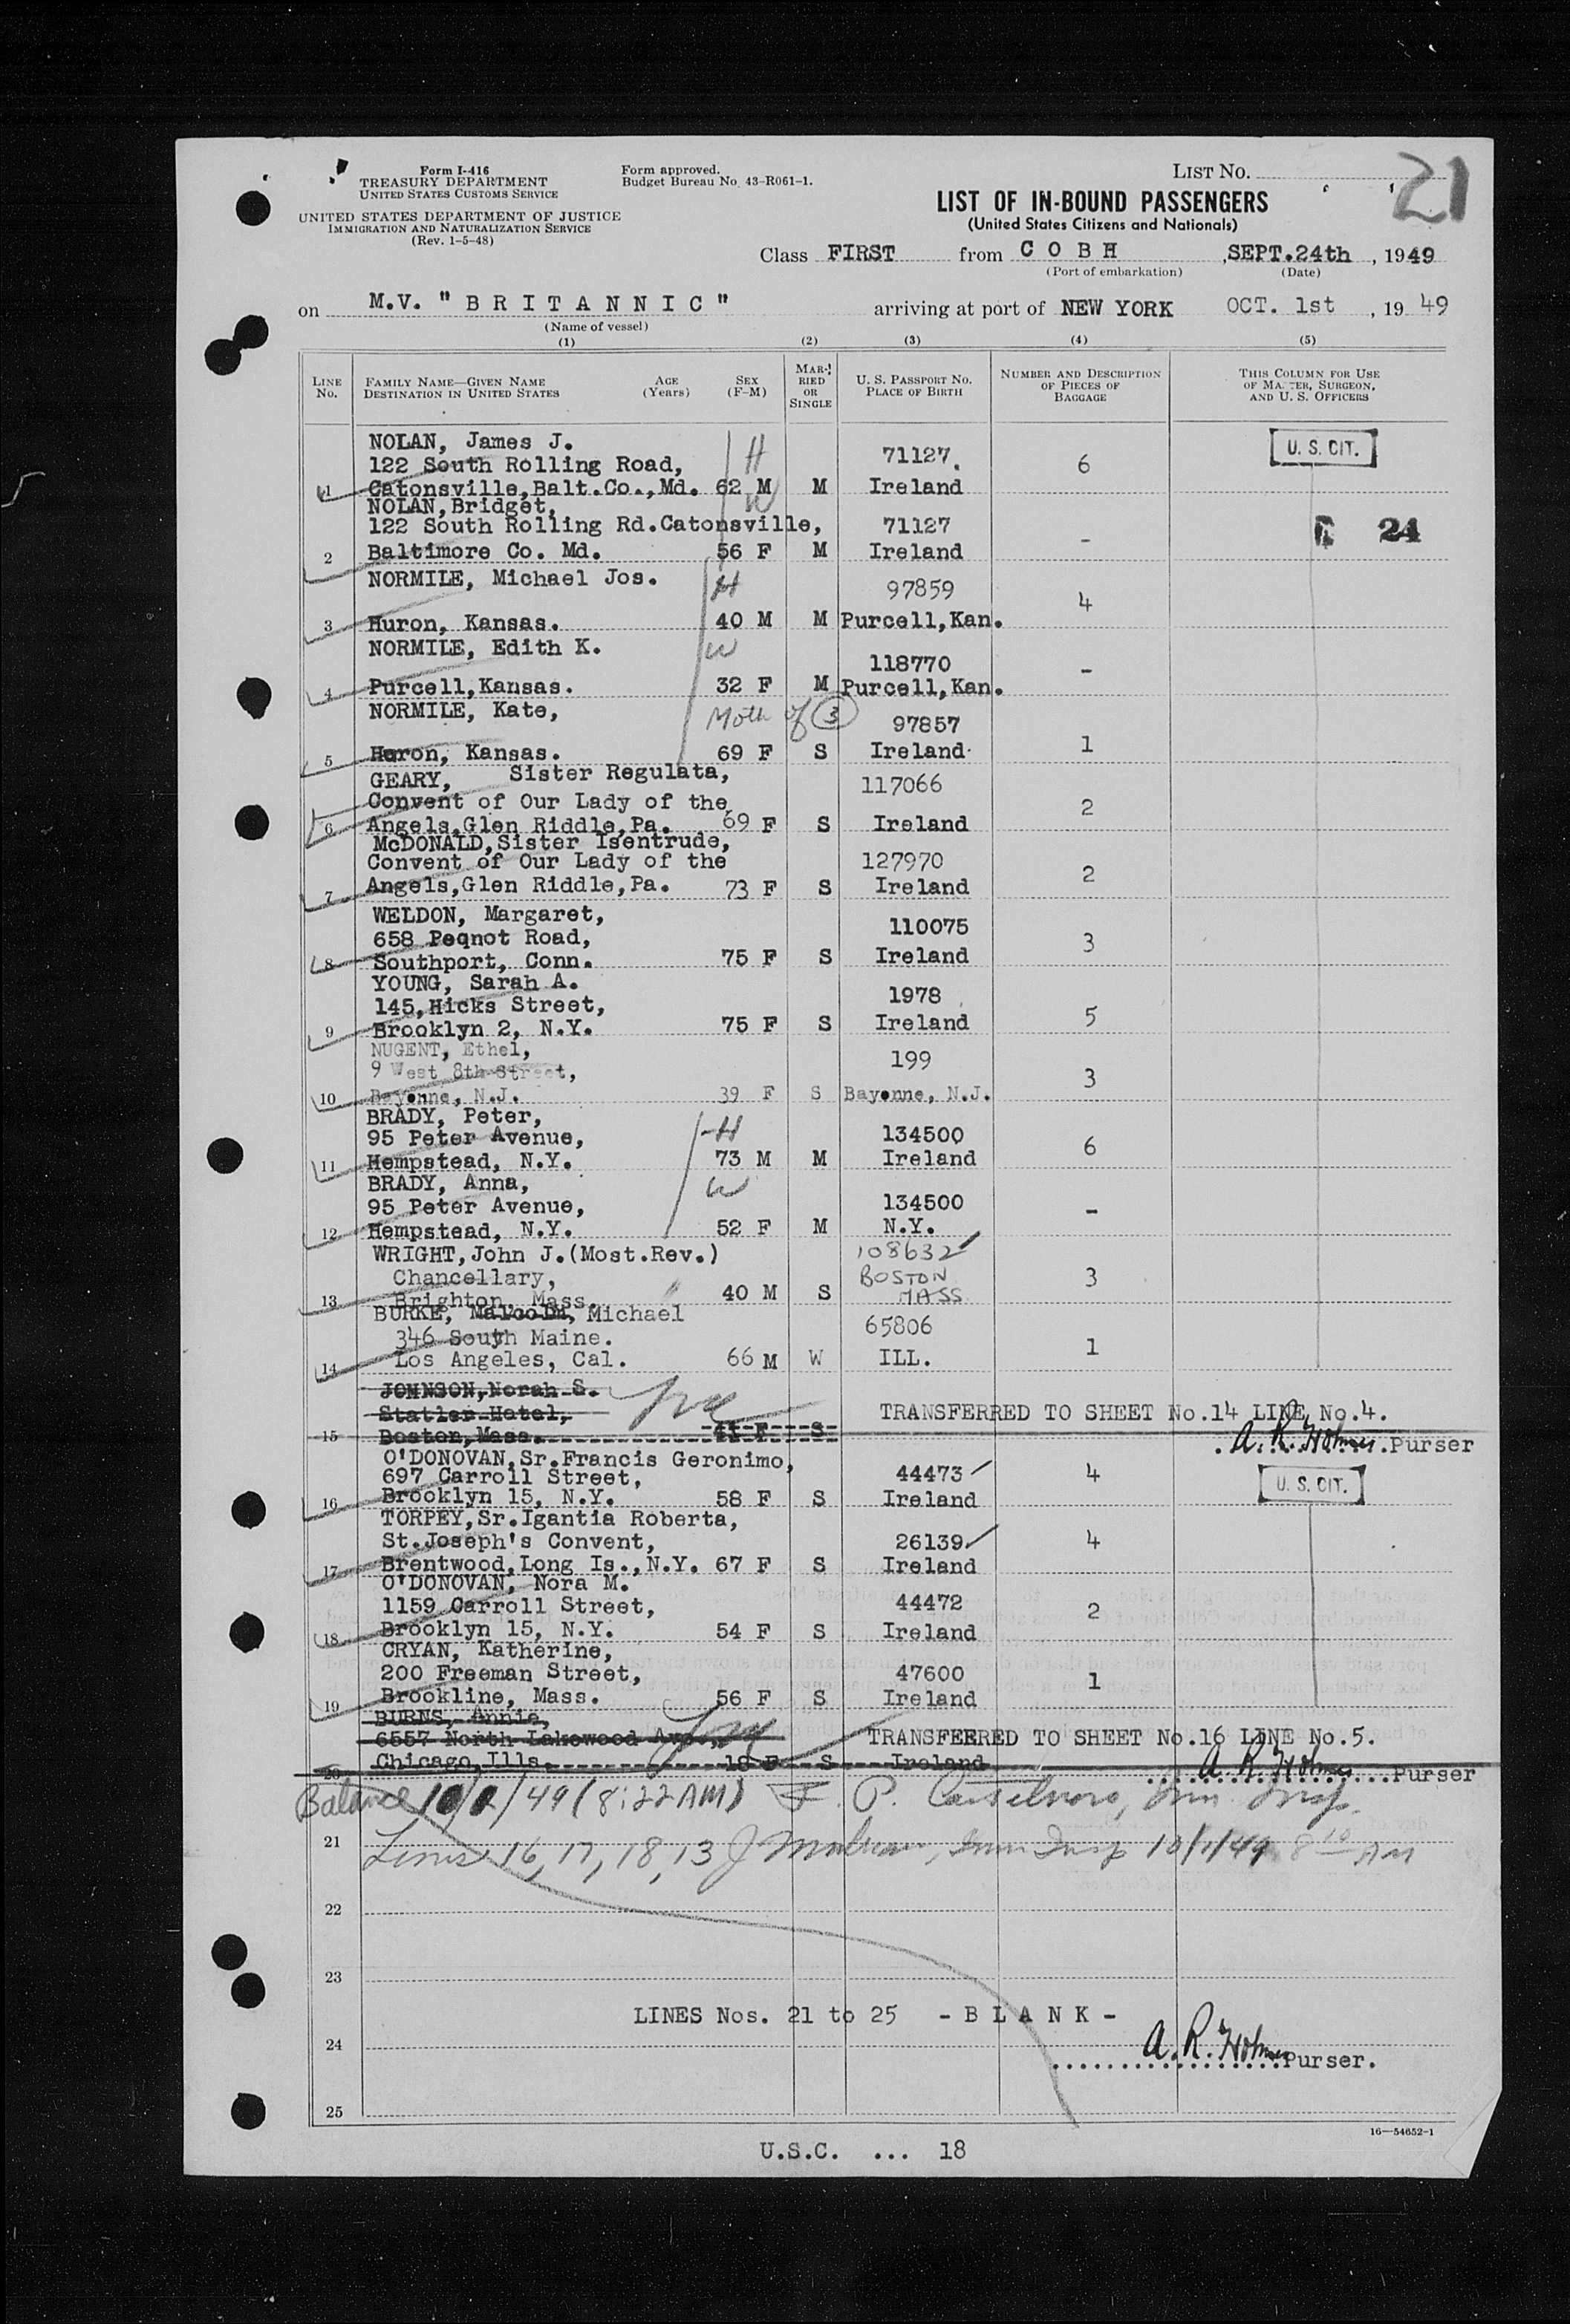 Form I-416
TREASURY DEPARTMENT
UNITED STATES CUSTOMS SERVICE
Form approved.
Budget Bureau No. 43-R061-1.
LIST NO.
21
UNITED STATES DEPARTMENT OF JUSTICE
IMMIGRATION AND NATURALIZATION SERVICE
(Rev. 1-5-48)
LIST OF IN-BOUND PASSENGERS
(United States Citizens and Nationals)
Class FIRST from C O B H , SEPT.24th , 1949
(Port of embarkation) (Date)
on M.V. " B R I T A N N I C " arriving at port of NEW YORK OCT. 1st , 19 49
(Name of vessel)
(1) (2) (3) (4) (5)
LINE NO. FAMILY NAME—GIVEN NAME DESTINATION IN UNITED STATES AGE (Years) SEX (F-M) MARRIED OR SINGLE U. S. PASSPORT NO. PLACE OF BIRTH NUMBER AND DESCRIPTION OF PIECES OF BAGGAGE THIS COLUMN FOR USE OF MASTER, SURGEON, AND U. S. OFFICERS
NOLAN, James J. H U. S. CIT.
122 South Rolling Road, 71127. 6
1 Catonsville,Balt.Co.,Md. 62 M M Ireland
NOLAN,Bridget, W
122 South Rolling Rd.Catonsville, 71127 - 24
2 Baltimore Co. Md. 56 F M Ireland
NORMILE, Michael Jos. H 97859 4
3 Huron, Kansas. 40 M M Purcell,Kan.
NORMILE, Edith K. W 118770 -
4 Purcell,Kansas. 32 F M Purcell,Kan.
NORMILE, Kate, Moth of 3 97857 1
5 Huron, Kansas. 69 F S Ireland
GEARY, Sister Regulata, 117066
Convent of Our Lady of the 2
6 Angels,Glen Riddle,Pa. 69 F S Ireland
McDONALD,Sister Isentrude,
Convent of Our Lady of the 127970 2
7 Angels,Glen Riddle,Pa. 73 F S Ireland
WELDON, Margaret, 110075
658 Peqnot Road, 3
8 Southport, Conn. 75 F S Ireland
YOUNG, Sarah A. 1978
145,Hicks Street, 5
9 Brooklyn 2, N.Y. 75 F S Ireland
NUGENT, Ethel, 199
9 West 8th Street, 3
10 Bayonne, N.J. 39 F S Bayonne, N.J.
BRADY, Peter, H
95 Peter Avenue, 134500 6
11 Hempstead, N.Y. 73 M M Ireland
BRADY, Anna, W
95 Peter Avenue, 134500 -
12 Hempstead, N.Y. 52 F M N.Y.
WRIGHT,John J.(Most.Rev.) 108632
Chancellary, BOSTON 3
13 Brighton, Mass. 40 M S MASS
BURKE, Malcolm, Michael 65806
346 South Maine. 1
14 Los Angeles, Cal. 66 M W ILL.
JOHNSON,Norah S.
Statler Hotel, TRANSFERRED TO SHEET No.14 LINE No.4.
15 Boston,Mass. 41 F S A. R. Holmes Purser
O'DONOVAN,Sr.Francis Geronimo,
697 Carroll Street, 44473 4 U. S. CIT.
16 Brooklyn 15, N.Y. 58 F S Ireland
TORPEY,Sr.Igantia Roberta,
St.Joseph's Convent, 26139 4
17 Brentwood,Long Is.,N.Y. 67 F S Ireland
O'DONOVAN, Nora M.
1159 Carroll Street, 44472 2
18 Brooklyn 15, N.Y. 54 F S Ireland
CRYAN, Katherine,
200 Freeman Street, 47600 1
19 Brookline, Mass. 56 F S Ireland
BURNS, Annie,
6557 North Lakewood Ave., TRANSFERRED TO SHEET No.16 LINE No.5.
20 Chicago,Ills. 18 F S Ireland A. R. Holmes Purser
Balance 10/ /49 (8:22 AM) F. P. Imm. Insp.
21 Lines 16, 17, 18, 13 J Imm Insp 10/1/49 8 10 AM
22
23
LINES Nos. 21 to 25 - B L A N K -
24 A. R. Holmes Purser.
25
16—54652-1
U.S.C. ... 18